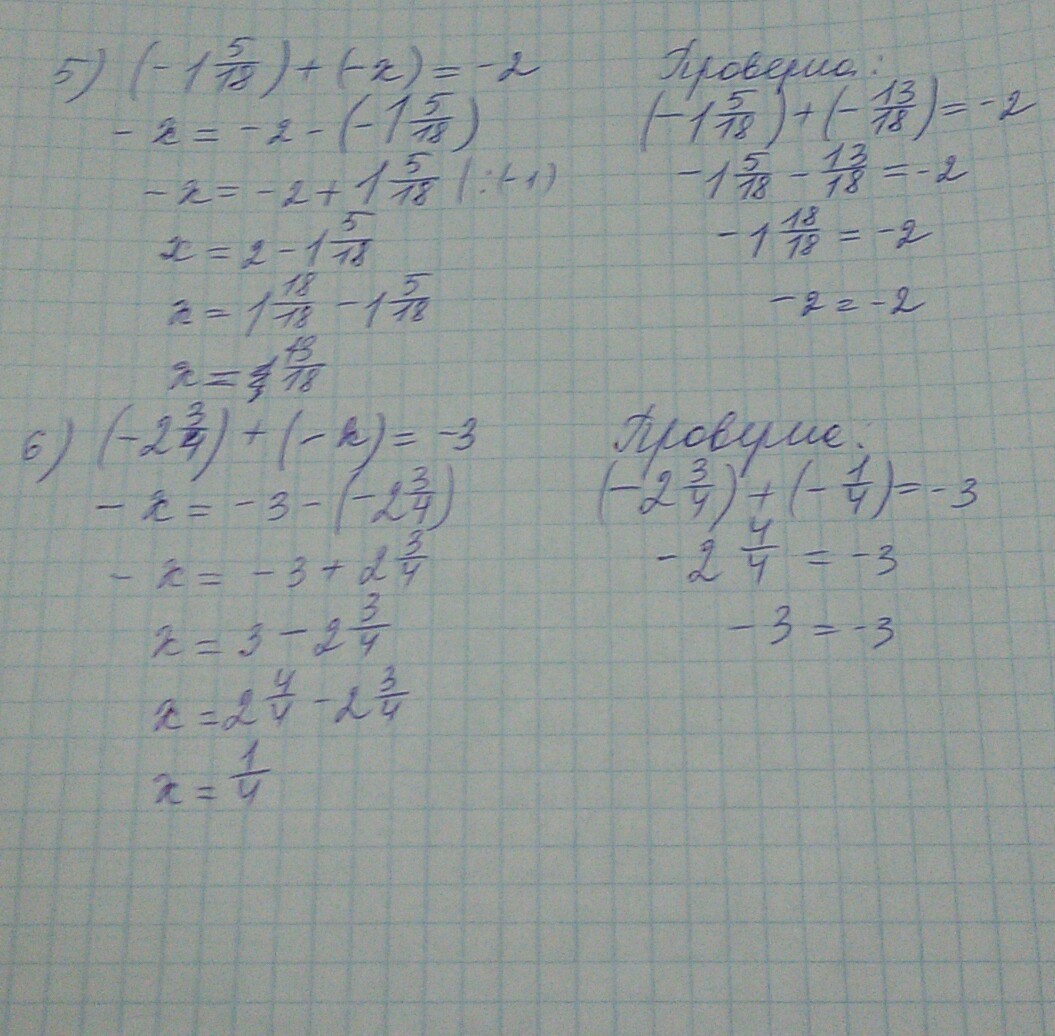 5) (-1 5/18) + (-x) = -2
-x = -2 - (-1 5/18)
-x = -2 + 1 5/18 | :(-1)
x = 2 - 1 5/18
x = 1 18/18 - 1 5/18
x = 13/18
Проверка:
(-1 5/18) + (-13/18) = -2
-1 5/18 - 13/18 = -2
-1 18/18 = -2
-2 = -2
6) (-2 3/4) + (-x) = -3
-x = -3 - (-2 3/4)
-x = -3 + 2 3/4
x = 3 - 2 3/4
x = 2 4/4 - 2 3/4
x = 1/4
Проверка:
(-2 3/4) + (-1/4) = -3
-2 4/4 = -3
-3 = -3